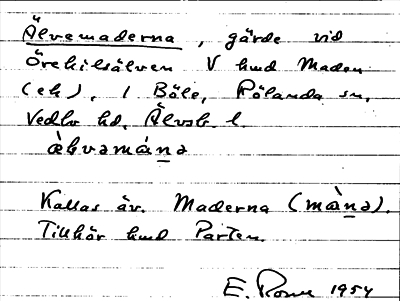 Älvemaderna, gärde vid
Örekilsälven V hmd Maden
(ek), i Böle, Rölanda sn,
Vedbo hd, Älvsb. l.
Kallas äv. Maderna (mànə).
Tillhör hmd Parten.
E. 1954